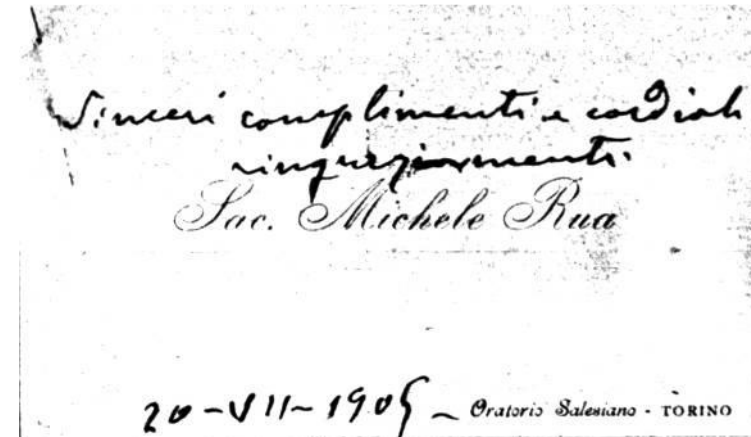 Sinceri complimenti e cordiali
ringraziamenti.
Sac. Michele Rua
20-VII-1905 - Oratorio Salesiano - TORINO